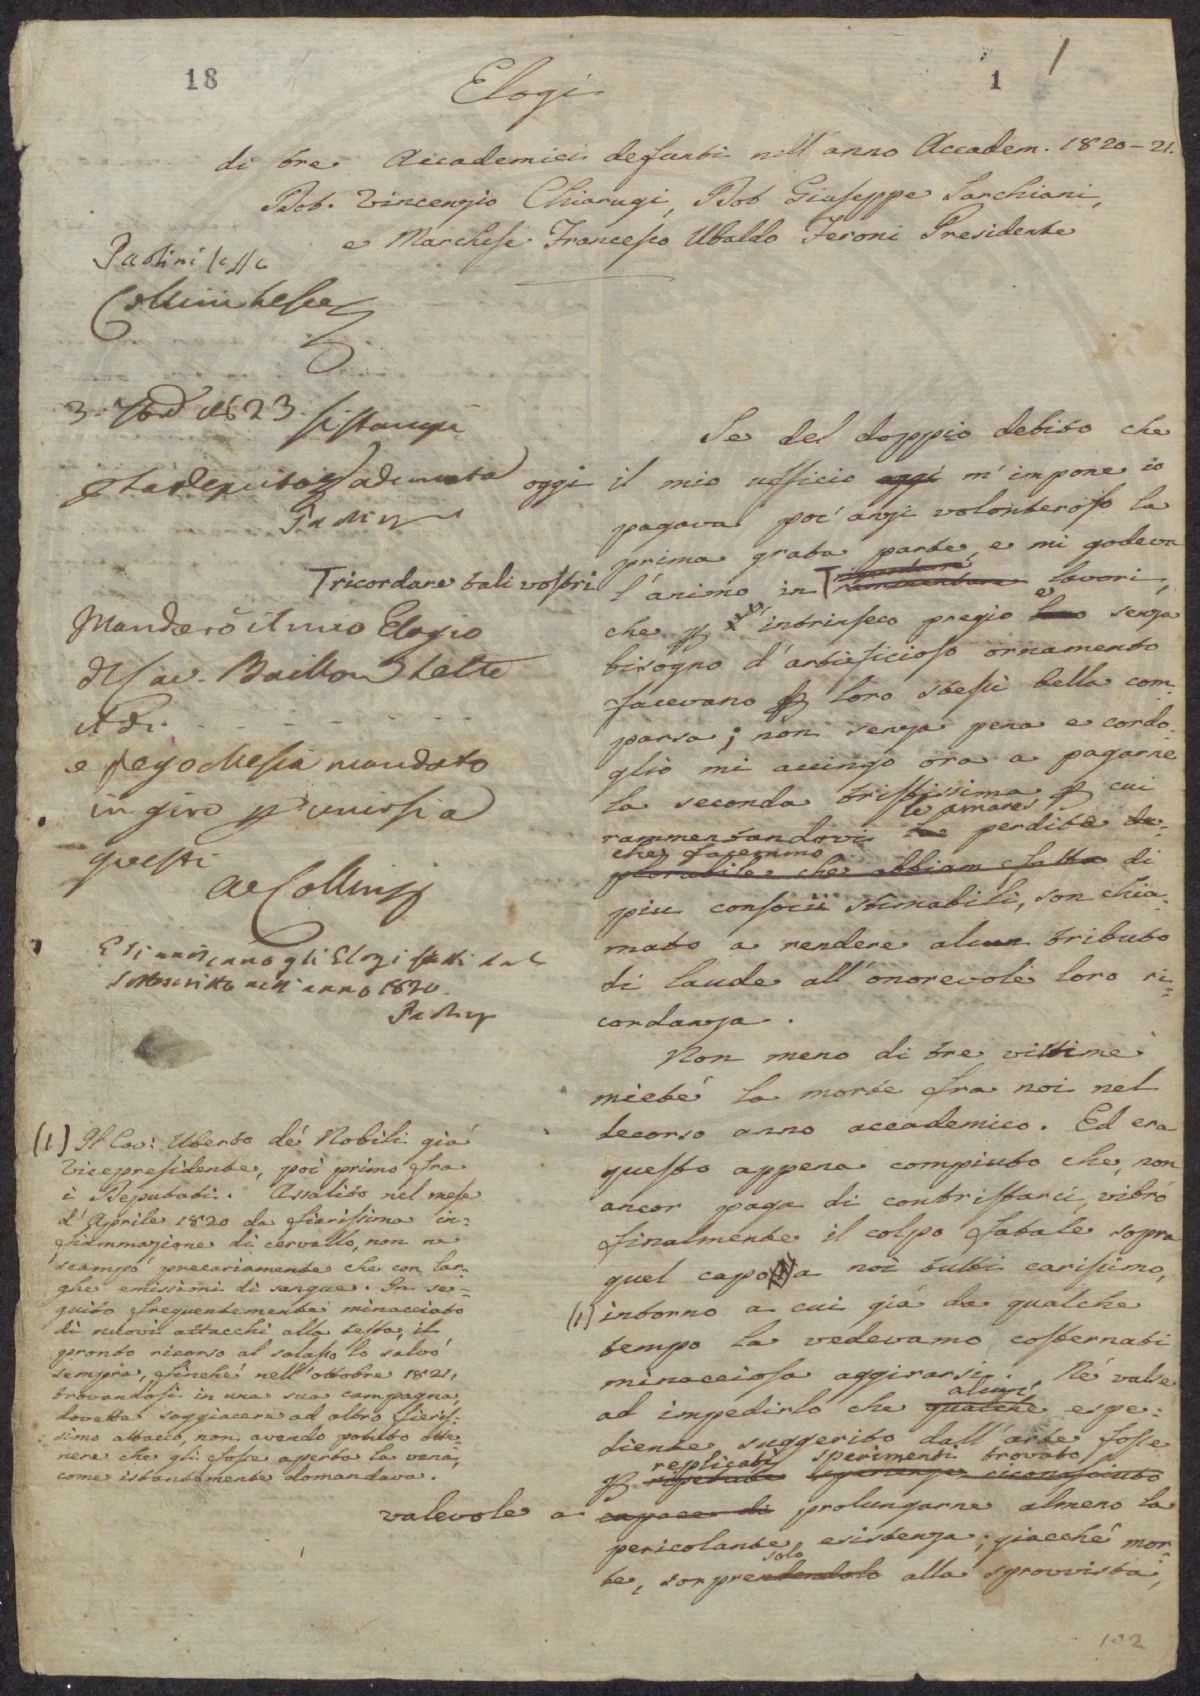 18
1
Elogi
di tre Accademici defunti nell'anno Accadem. 1820-21.
Dot. Vincenzio Chiarugi, Dot Giuseppe Sarchiani,
e Marchese Francesco Ubaldo Feroni Presidente
Paolini lesse
Collini lesse
3. 7bre 1823. si stampi
adunata
Manderò il mio Elogio
del Cav. Baillou
e prego che sia mandato
in giro
questi
Collini
E si uniscano gli Elogi fatti dal
sottoscritto nell'anno 1820.
(1) Il Cav: Uberto de' Nobili già
Vicepresidente, poi primo fra
i Deputati. Assalito nel mese
d'Aprile 1820 da fierissima in=
fiammazione di cervello, non ne
scampò precariamente che con lar=
ghe emissioni di sangue. In se=
guito frequentemente minacciato
di nuovi attacchi alla testa, il
pronto ricorso al salasso lo salvò
sempre, finchè nell'ottobre 1821,
trovandosi in una sua campagna,
dovette soggiacere ad altro fieris=
simo attacco, non avendo potuto otte=
nere che gli fosse aperta la vena,
come istantemente domandava.
Se del doppio debito che
oggi il mio ufficio oggi m'impone io
pagava poc'anzi volonteroso la
prima grata parte, e mi godeva
ricordare tali vostri l'animo in rammentare lavori,
che p intrinseco pregio e senza
bisogno d'artificioso ornamento
facevano p loro stessi bella com=
parsa; non senza pena e cordo=
glio mi accingo ora a pagarne
la seconda tristissima p cui
le amare
rammentandovi le perdite de=
che facemmo
plorabili che abbiam fatto di
più consocii stimabili, son chia=
mato a rendere alcun tributo
di laude all'onorevole loro ri=
cordanza.
Non meno di tre vittime
mietè la morte fra noi nel
decorso anno accademico. Ed era
questo appena compiuto che, non
ancor paga di contristarci, vibrò
finalmente il colpo fatale sopra
quel capo a noi tutti carissimo,
(1) intorno a cui già da qualche
tempo la vedevamo costernati
minacciosa aggirarsi. Nè valse
alcun
ad impedirlo che qualche espe=
diente suggerito dall'arte fosse
replicati sperimenti trovato
p ripetute esperienze riconosciuto
valevole a capace di prolungarne almeno la
pericolante esistenza; giacchè mor=
solo
te, sorprendendolo alla sprovvista,
102